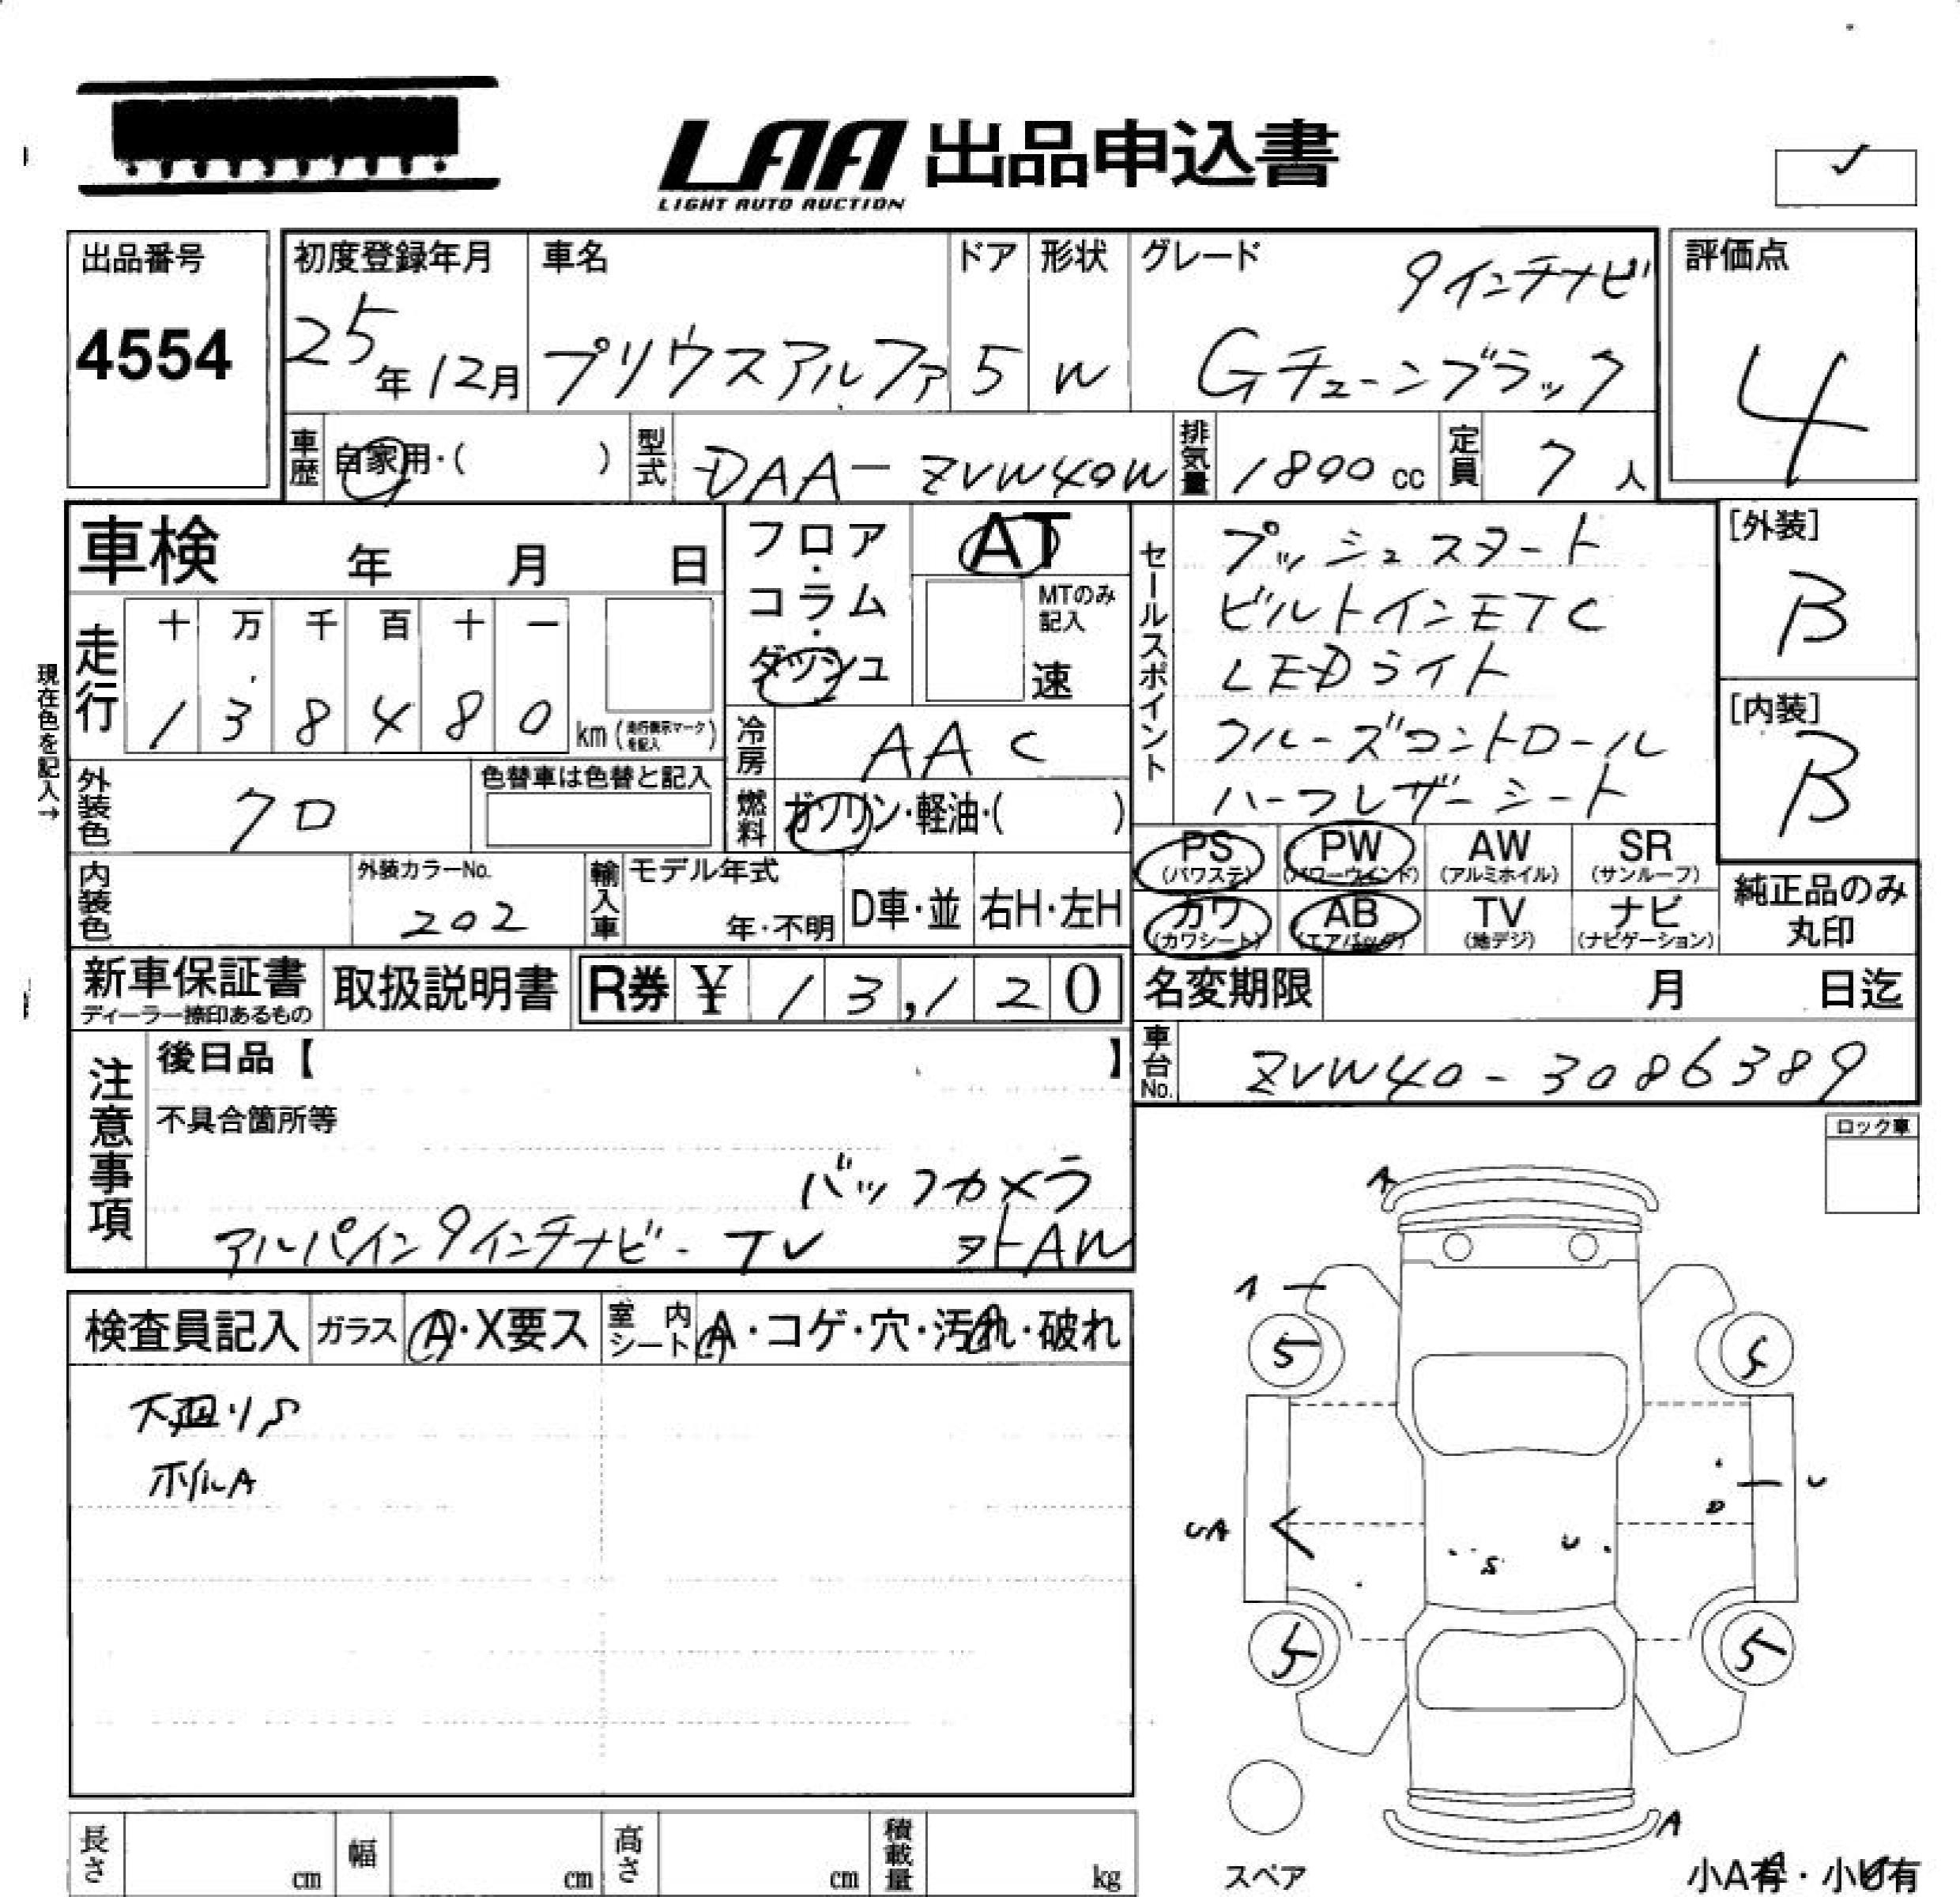 LAA 出品申込書
LIGHT AUTO AUCTION
出品番号
4554
初度登録年月
25年12月
車名
プリウスアルファ
ドア
5
形状
W
グレード
9インチナビ
Gチューンブラック
評価点
4
車歴
自家用・( )
型式
DAA-ZVW40W
排気量
1800cc
定員
7人
車検 年 月 日
現在色を記入→
走行
十 万 千 百 十 一
1 3 8 4 8 0
km(走行表示マークを記入)
フロア・コラム・ダッシュ
AT
MTのみ記入
速
セールスポイント
プッシュスタート
ビルトインETC
LEDライト
クルーズコントロール
ハーフレザーシート
[外装]
B
[内装]
B
冷房
AAC
外装色
クロ
色替車は色替と記入
燃料
ガソリン・軽油・( )
PS
(パワステ)
PW
(パワーウインド)
AW
(アルミホイル)
SR
(サンルーフ)
カワ
(カワシート)
AB
(エアバッグ)
TV
(地デジ)
ナビ
(ナビゲーション)
純正品のみ
丸印
内装色
外装カラーNo.
202
輸入車
モデル年式
年・不明
D車・並
右H・左H
新車保証書
ディーラー捺印あるもの
取扱説明書
R券 ¥ 13,120
名変期限 月 日迄
車台No.
ZVW40-3086389
注意事項
後日品【 】
不具合箇所等
バックカメラ
アルパイン9インチナビ-TV 外AW
ロック車
検査員記入
ガラス
A・X要ス
室内シート
A・コゲ・穴・汚れ・破れ
ホイルA
A
1
5
5
U
D
UA
S
U
5
5
A
スペア
小A有・小U有
長さ cm
幅 cm
高さ cm
積載量 kg